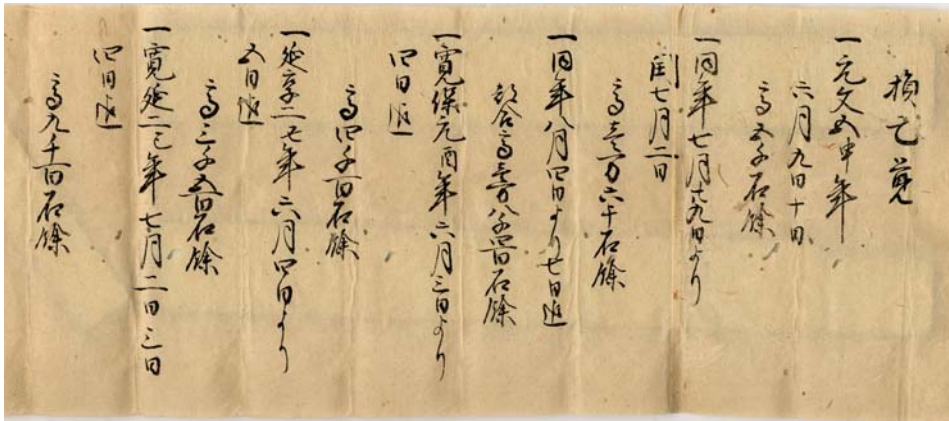 損亡覚
一元文五申年
六月九日十日
高五千石餘
一同年七月十九日より
閏七月二日
高壱万六千石餘
一同年八月四日より七日迄
都合高壱万八千四百石餘
一寛保元酉年六月三日より
四日迄
高四千百石餘
一延享二丑年六月四日より
五日迄
高三千五百石餘
一寛延二巳年七月二日三日
四日迄
高九千百石餘